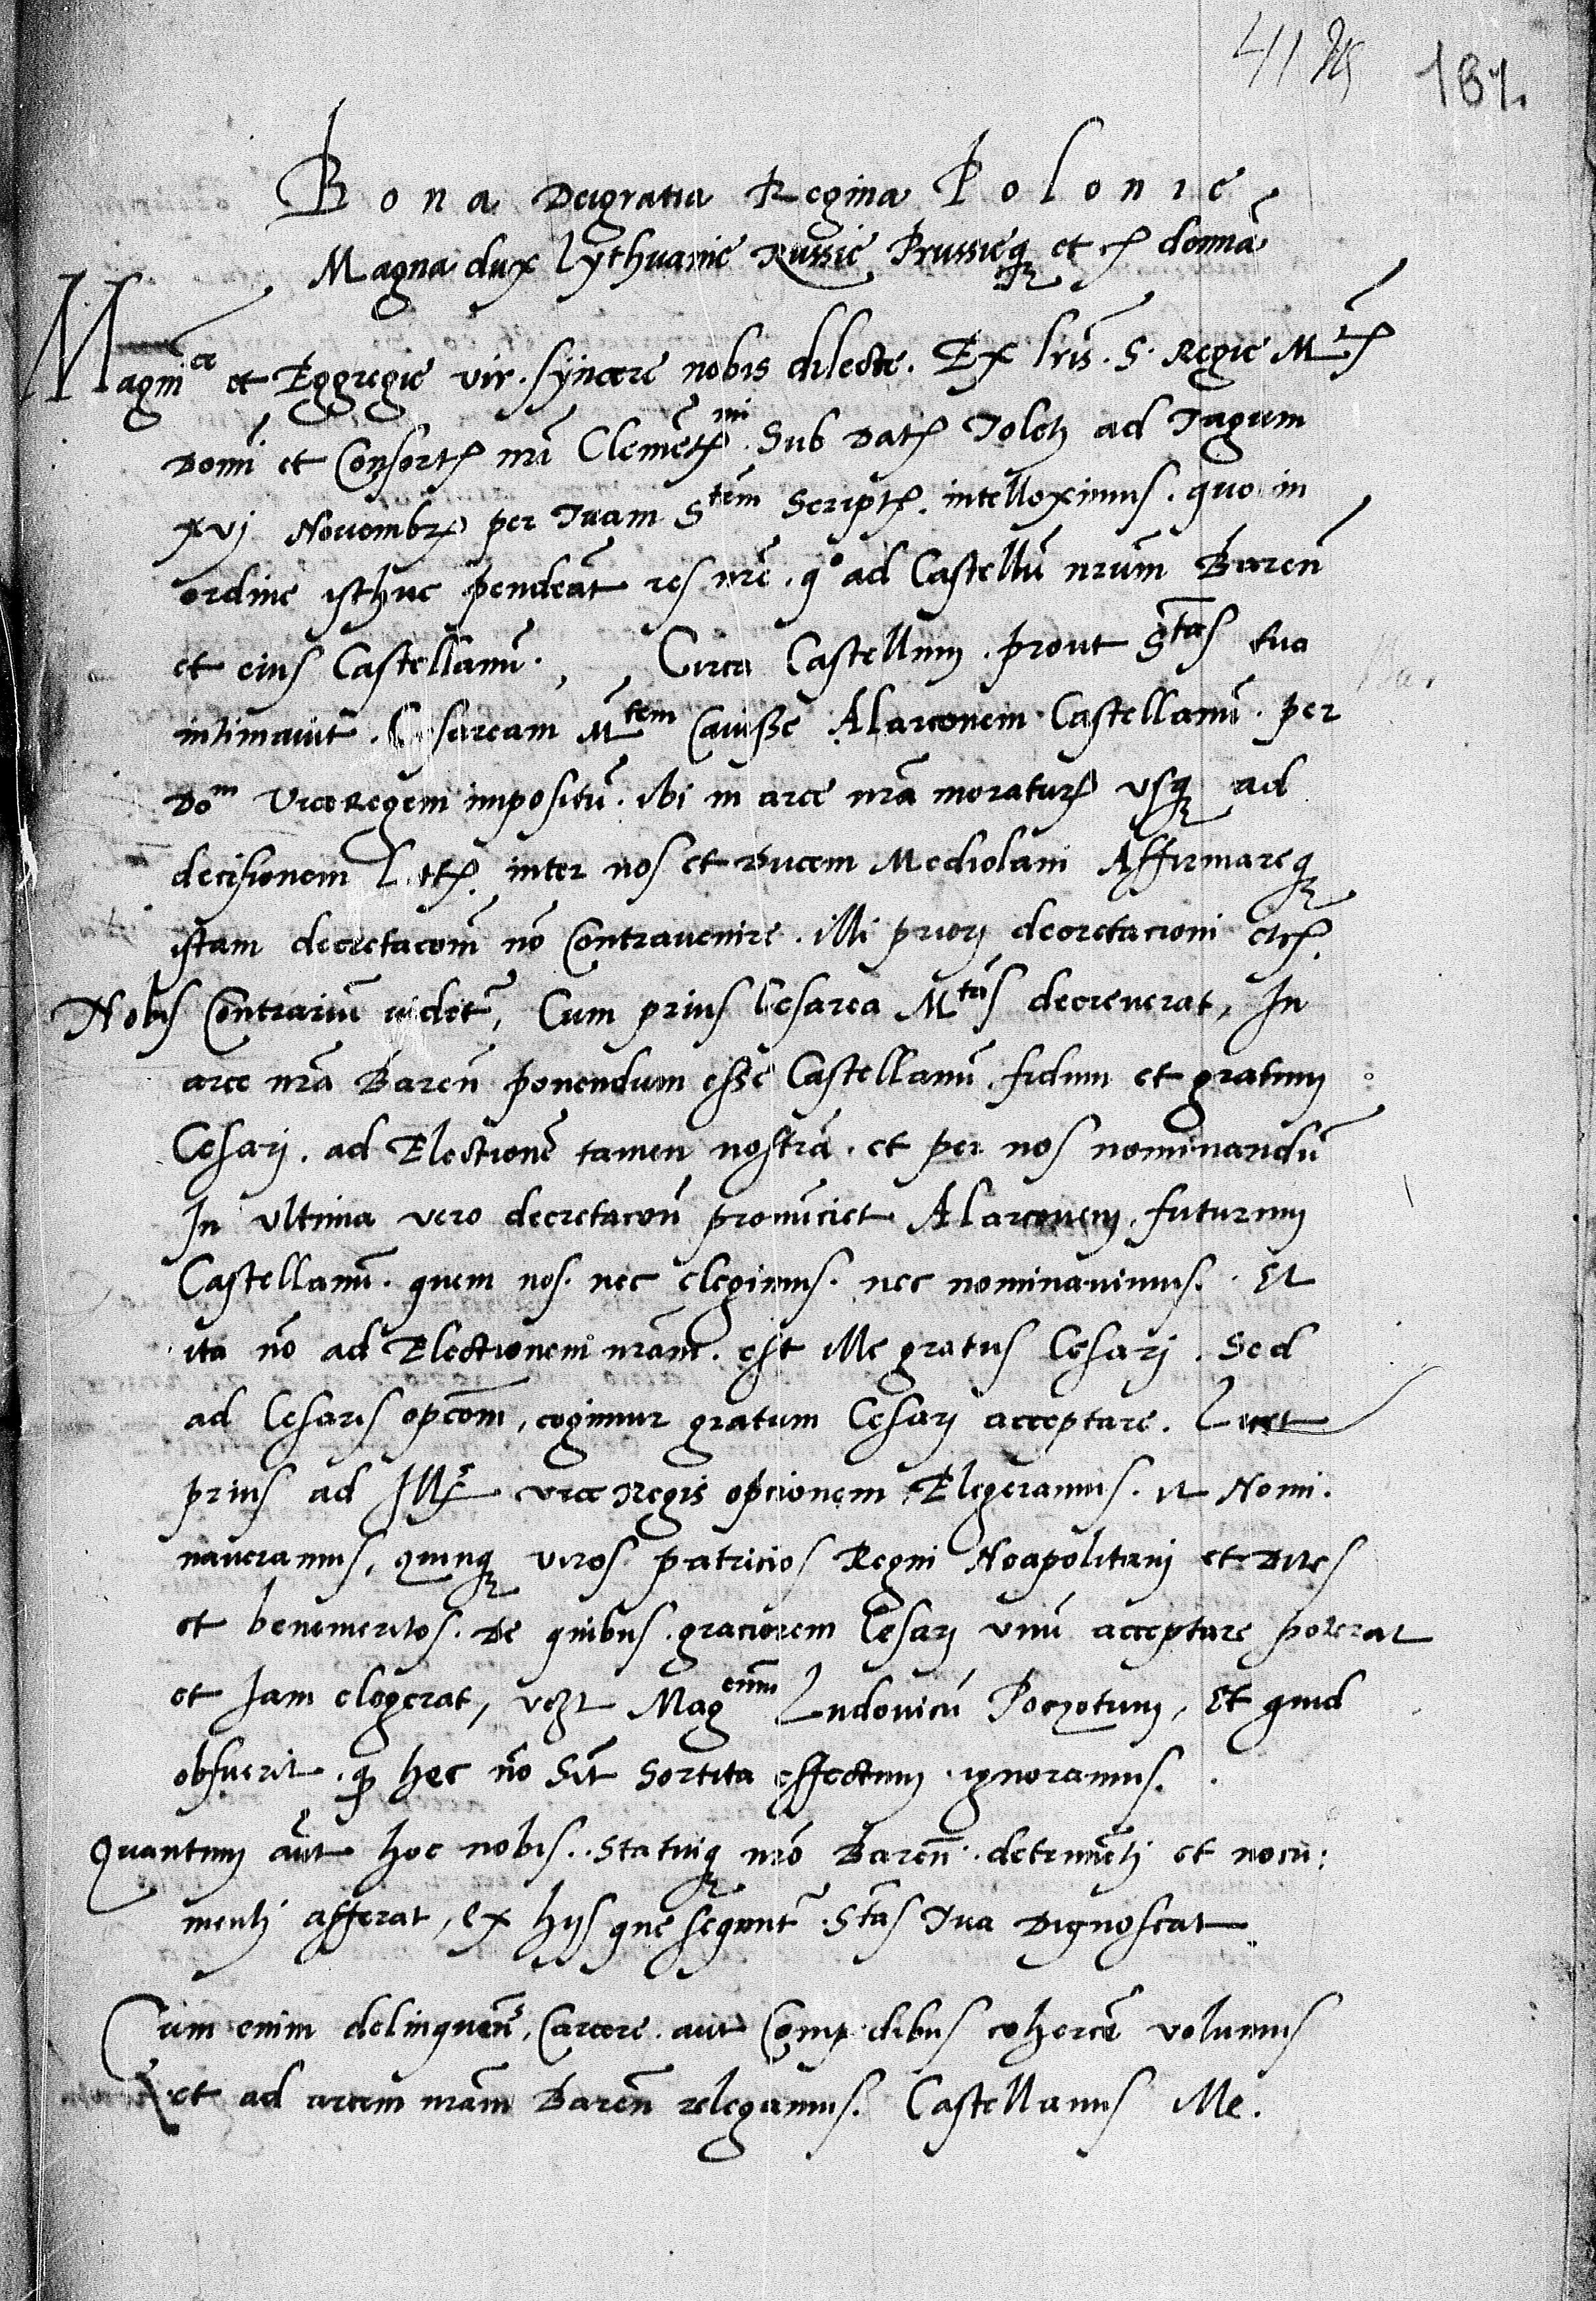 181.
Bona Deigratia Regina Polonie
Magna dux Lythuanie Russie Prussieq₃ etc domna
Magnice et Eggregie vir. syncere nobis dilecte. Ex lris. S. Regie Mtis
Domi et Consortis nri Clementmi. Sub Datis Toletj ad Tagum
xvj Novembris per Tuam Stem scriptis. intelleximus. quo in
ordine isthuc pendeāt res nrē. qº ad Castellū nrum Baren̄
et eius Castellanū. Circa Castellum. prout Stas tua
intimavit. Cesaream Mtem Cavisse Alarconem Castellanū. per
Dom ViceRegem impositū. ibi in arce nrā moraturū usq₃ ad
decisionem litis. inter nos et Ducem Mediolani Affirmareq₃
istam decretacōm nō Contravenire. illi priorj decretacioni etc.
Nobis Contrariū videtr, Cum prius Cesarea Mtas decreverat, In
arce nrā Barēn ponendum esse Castellanū. fidum et gratum
Cesarj. ad Electionē tamen nostrā. et per nos nominandū
In ultima vero decretacōn pronūciet Alarconem, futurum
Castellanū. quem nos. nec elegimus. nec nominavimus. Et
ita nō ad Electionem nrām. est ille gratus Cesarj. Sed
ad Cesaris opcōm, cogimur gratum Cesarj acceptare. Licet
prius ad Illis vice Regis opcionem Elegeramus. et Nomi.
naveramus, quinq₃ viros patricios Regni Neapolitanj et Dites
et benemeritos. De quibus. graciorem Cesarj unū acceptare poterat
et Jam elegerat, vez Magcum Ludovicū Poczotum, Et quid
obfuerit. q hec nō sit sortita effectum. ignoramus.
Quantum aūt hoc nobis. statuiq₃ nrō Barēn. detrimētj et nocu:
mentj afferat, ex hijs que sequntr. Stas Tua Dignoscat
Cum enim delinquen̄s, Carcere. aut Compedibus cohercē volumus
et ad arcem nrām Barēn relegamus. Castellanus ille.